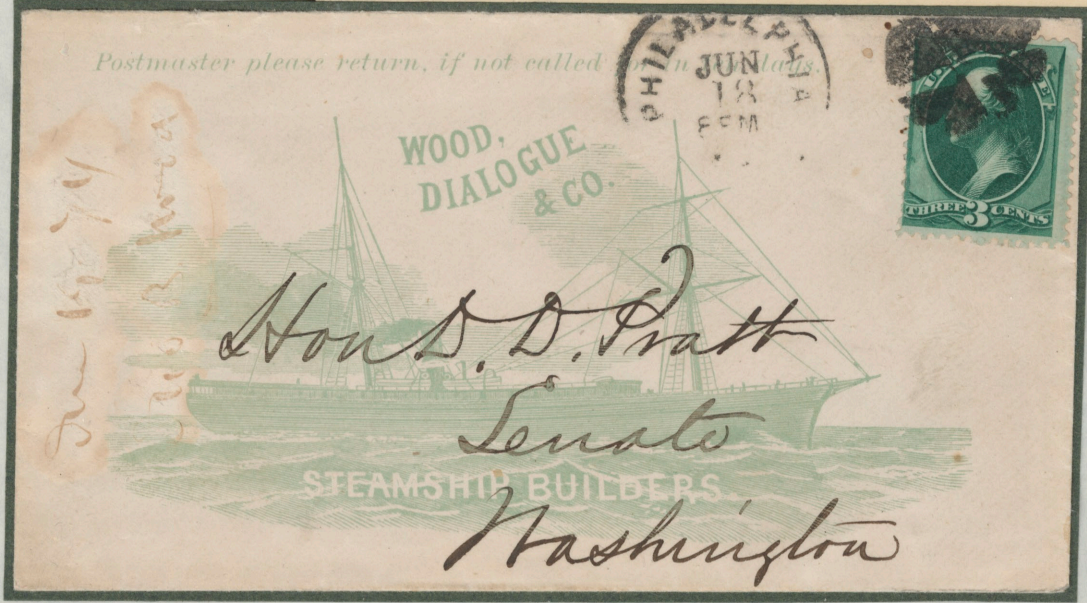 Postmaster please return, if not called
PHILADELPHIA
JUN
18
8 PM
THREE 3 CENTS
WOOD,
DIALOGUE
& CO.
Hon D. D. Pratt
Senate
Washington
STEAMSHIP BUILDERS.